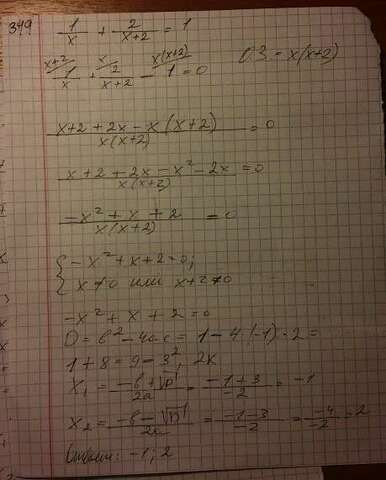 349
1/x + 2/(x+2) = 1
x+2/ 1/x + x/ 2/(x+2) - x(x+2)/ 1 = 0   О.З = x(x+2)
(x+2+2x-x(x+2))/(x(x+2)) = 0
(x+2+2x-x²-2x)/(x(x+2)) = 0
(-x²+x+2)/(x(x+2)) = 0
{ -x²+x+2=0;
x≠0 или x+2≠0
-x²+x+2=0
D = b²-4ac = 1-4·(-1)·2 =
1+8=9=3², 2К
x₁ = (-b+√D)/2a = (-1+3)/-2 = -1
x₂ = (-b-√D)/2a = (-1-3)/-2 = -4/-2 = 2
Ответ: -1; 2